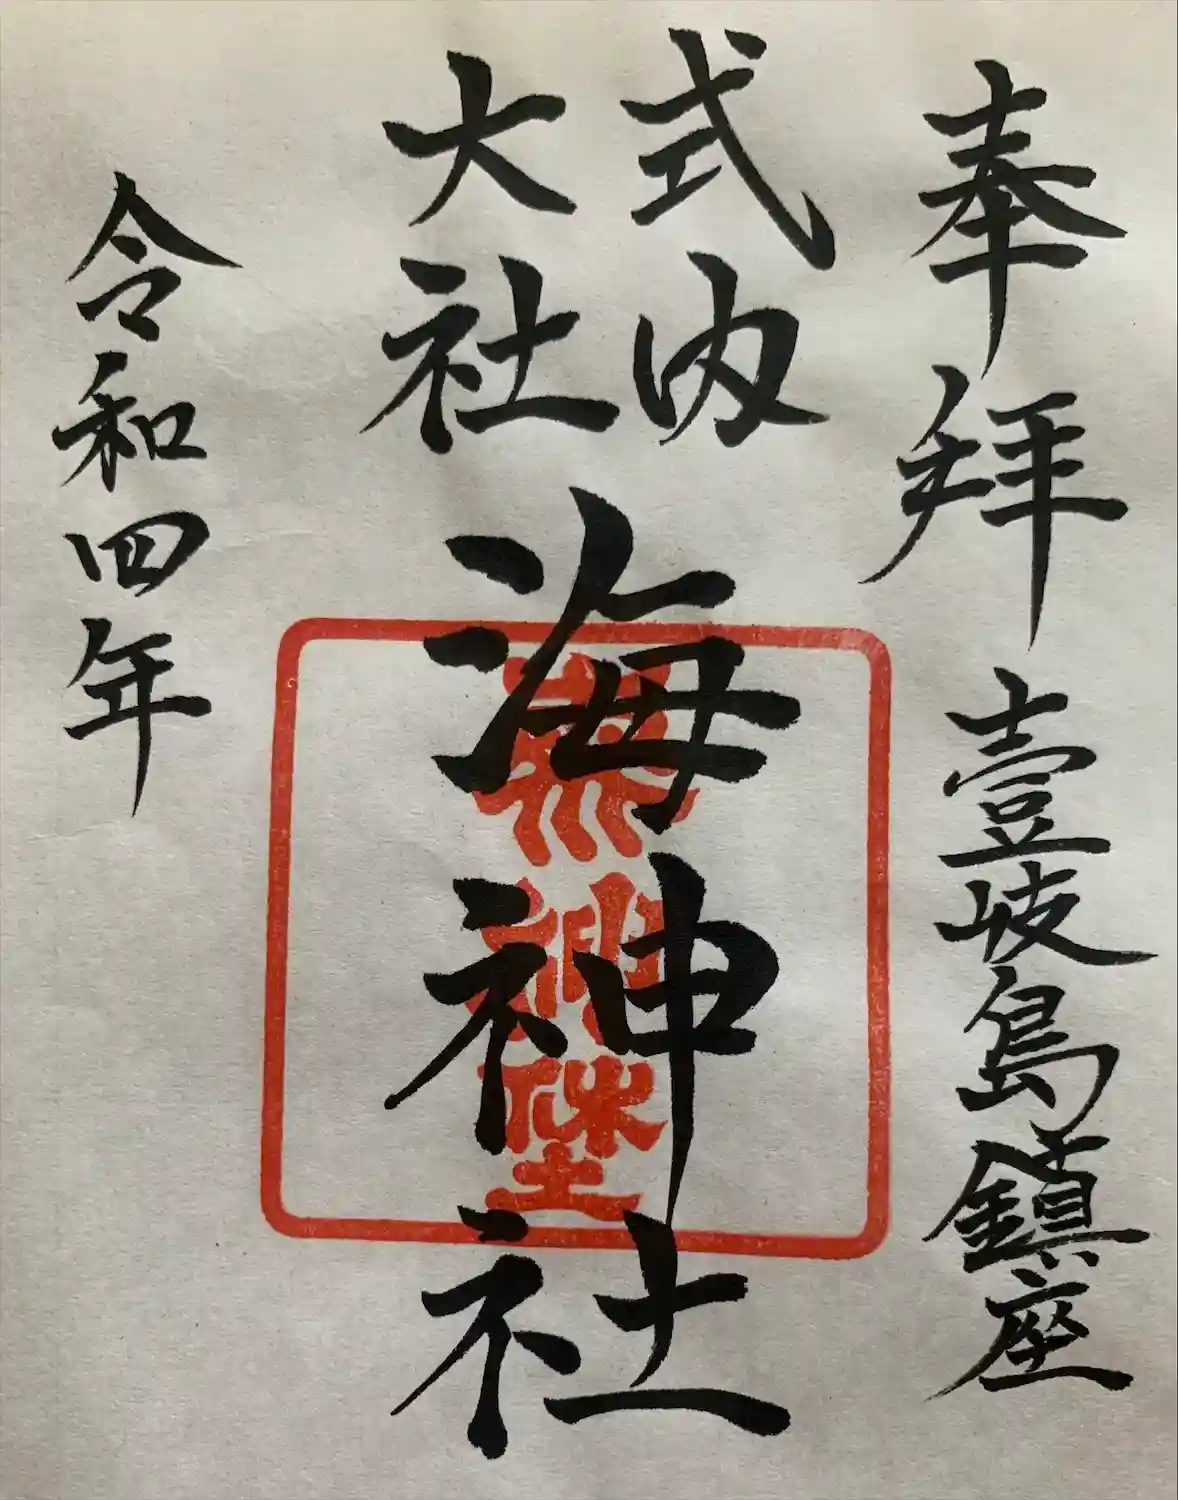 奉拝 壹岐島鎮座
式内
大社
海神社
令和四年